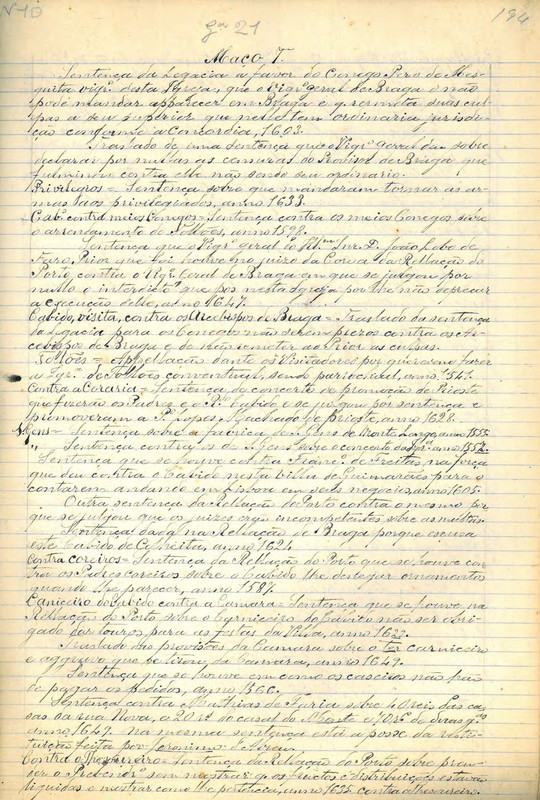 Nº10
gav 21
194
Maço 7.
Sentença da Legacia á favor do Conego Pero de Mes-
quita vigrº desta Igreja, que o Vigrº geral de Braga o não
pode mandar apparecer em Braga e q remeta suas cul-
pas a seu superior que nelle tem ordinaria jurisdi-
ção conforme a Concordia, 1603.
Traslado de uma sentença que o Vigrº Geral deu sobre
declarar por nullas as censuras do Provisor de Braga que
fulminou contra elle não sendo seu ordinario.
Privilegios = Sentença sobre que mandaram tornar as ar-
mas aos privilegiados, anno 1633.
Cabº contra meios Conegos = Sentença contra os meios Conegos sobre
o arrendamento de Tollões, anno 1598.
Sentença que o Vigrº geral do Illm Snr. D. João Lobo de
Faro, Prior que foi houve no juizo da Coroa da Rellação do
Porto, contra o Vigrº Geral de Braga em que se julgou por
nullo o interdito que pos nesta Igreja por lhe não deprecar
a execução delle, anno 1647.
Cabido, visita, contra os Arcebispos de Braga = Traslado da sentença
da Legacia para os Conegos não serem prezos contra os Ar-
cebispos de Braga e de não remeter ao Prior as culpas.
Tollões = Appellação dante os Visitadores por quererem fazer
a Igrª de Tollões conventual, sendo parrochial, anno 154
Contra a Coraria = Sentença do concerto da promoção de Prioste
que fizerão os Padres e o Rº Cabido e se julgou por sentença e
promoveram a Pº Lopes Machado de prioste, anno 1628.
= Sentença sobre a fabrica de de Monte Longo, anno 1555.
" Sentença contra os de sobre o concerto da Igrª, anno 1552.
Sentença que se houve contra Francº de Freitas na força
que deu contra o Cabido nesta Villa de Guimarães para o
contarem andando em Lisboa em seus negocios, anno 1605.
Outra sentença da Rellação do Porto contra o mesmo por
que se julgou que os juizes erão incompetentes sobre as
Sentença dada na Rellação de Braga porque escusa
este Cabido de Colheita, anno 1624
Contra Coreiros = Sentença da Rellação do Porto que se houve con-
tra os Padres Coreiros sobre o Cabido lhe denegar ornamentos
quando lhe parecer, anno 1587.
Carniceiro do Cabido contra a Camara = Sentença que se houve na
Rellação do Porto sobre o Carniceiro do Cabido não ser obri-
gado dar touros para as festas da Villa, anno 1632.
Traslado das provisões da Camara sobre o ter carniceiro
e aggravo que se tirou da Camara, anno 1649.
Sentença que se houve em como os caseiros não hão
de pagar os pedidos, anno 1366.
Sentença contra Mathias de Faria sobre 40 reis das ca-
sas da rua Nova, e 20 rs do casal do Monte e
anno 1647. na mesma sentença está a posse da resti-
tuição feita por Jeronimo d'Abreu.
Contra o Thezoureiro = Sentença da Rellação do Porto sobre pren-
der o Prebendrº sem mostrar q os fructos e distribuições estavão
liquidas e mostrar como lhe pertencia, anno 1635. contra o thezoureiro.